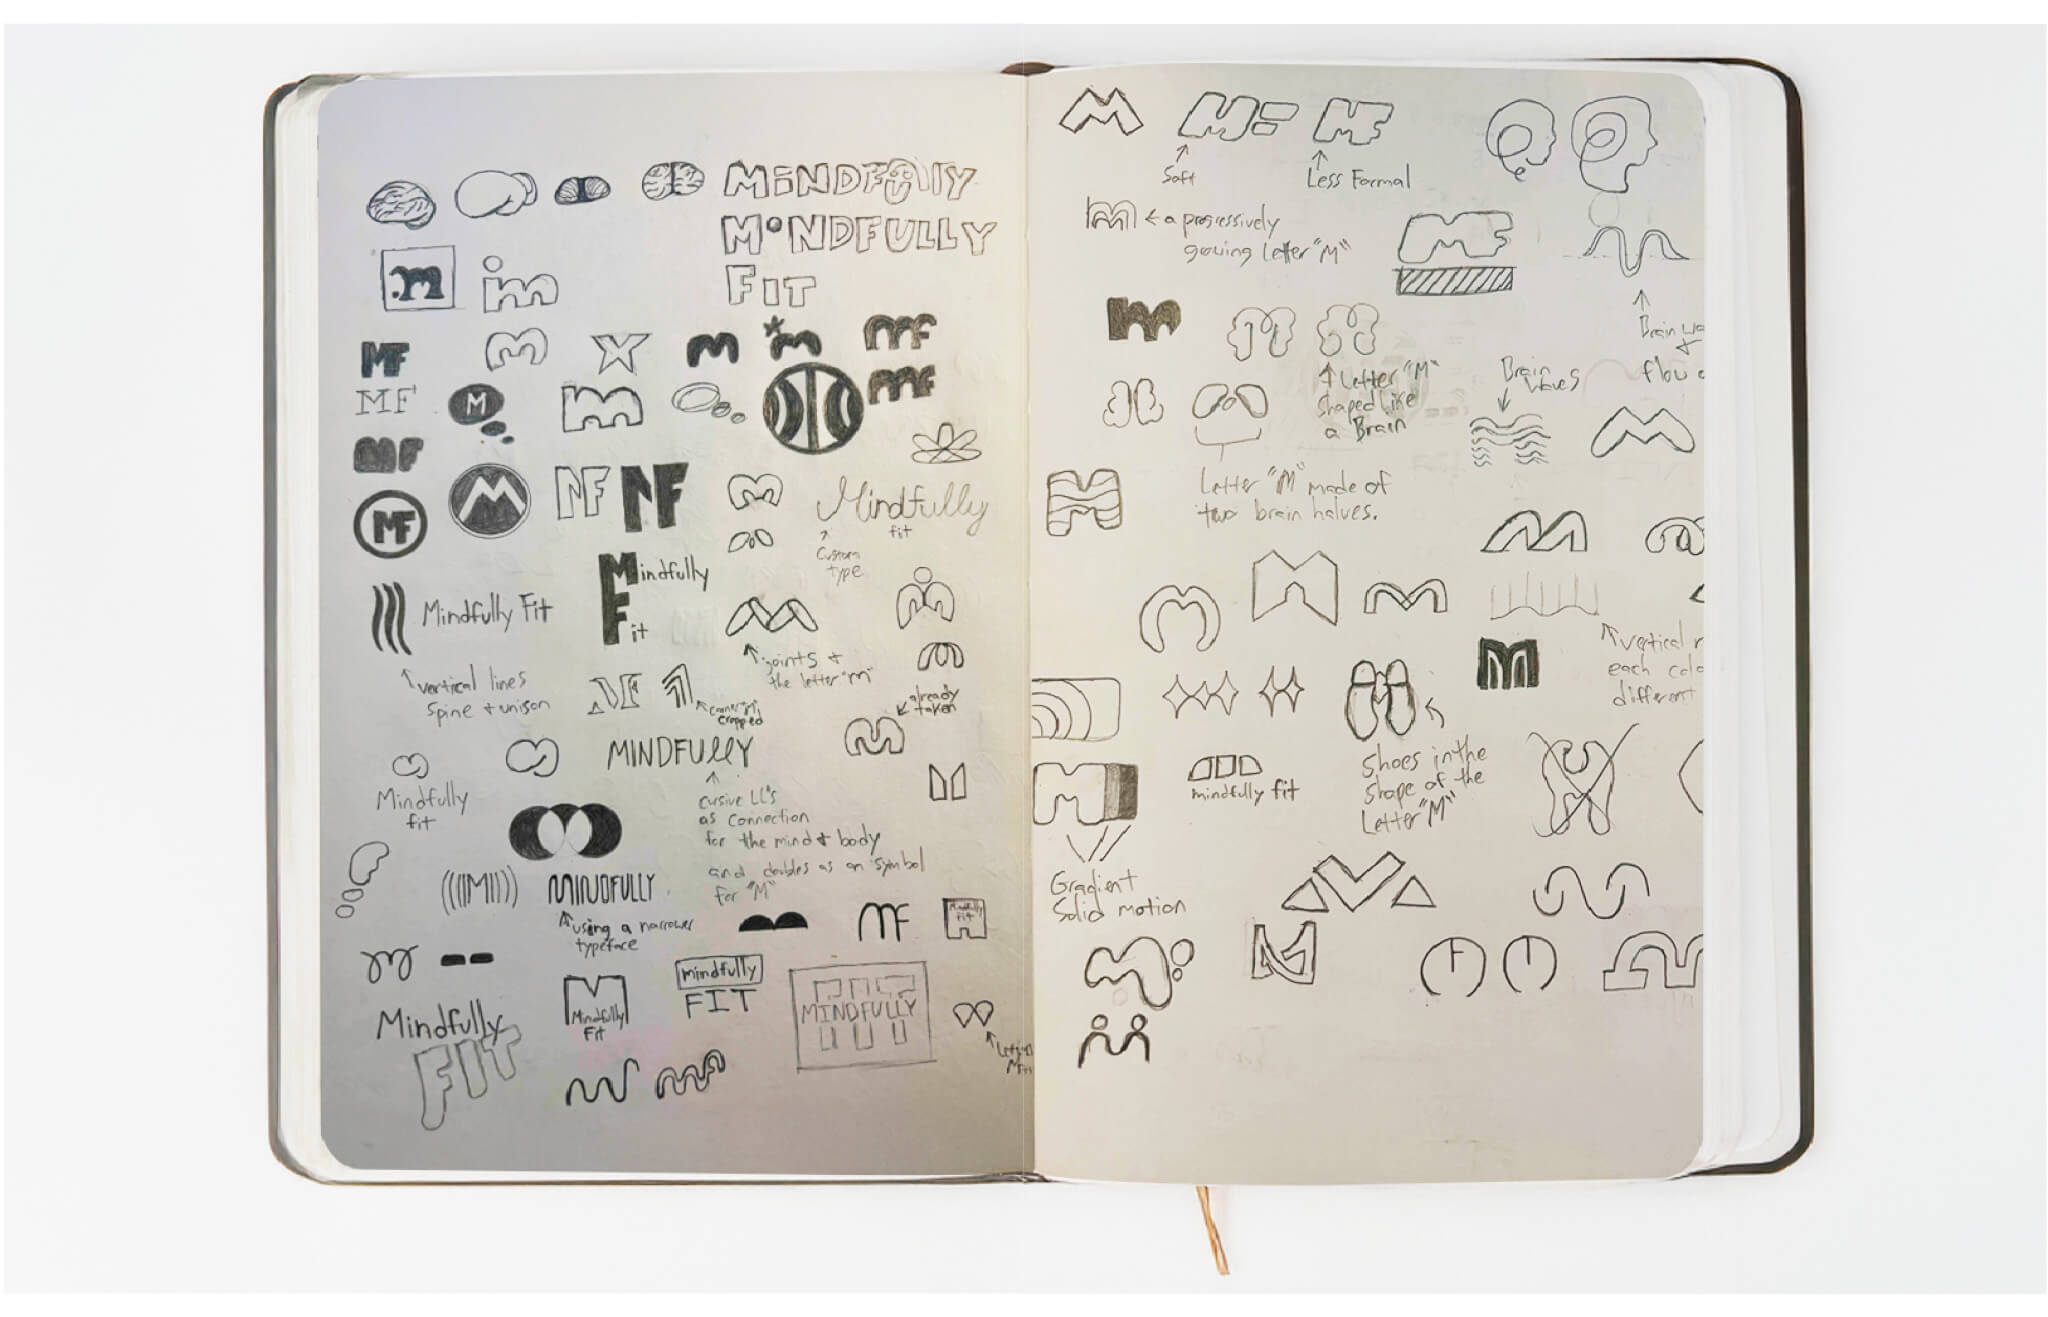 MiNDFUllY
MINDFULLY
FIT
m
im
MF
M
m
mf
MF
M
m
mf
MF
MF
M
NF
NF
m
Mindfully
fit
Custom
type
Mindfully
Fit
Mindfully Fit
vertical lines
spine + unison
joints +
the letter "m"
cropped
already
taken
Mindfully
fit
MINDFUllY
cusive LL's
as connection
for the mind + body
and doubles as an symbol
for "M"
(((M)))
MINDFULLY
using a narrower
typeface
MF
Mindfully
fit
Mindfully
FIT
Mindfully
Fit
mindfully
FIT
MINDFULLY
M
MF
MF
Soft
Less Formal
m
a progressively
growing letter "M"
MF
Brain wa
+
flow
m
Letter "M"
shaped like
a Brain
Brain
waves
Letter "M" made of
two brain halves.
M
vertical r
each colo
different
M
mindfully fit
Shoes in the
shape of the
Letter "M"
M
Gradient
Solid motion